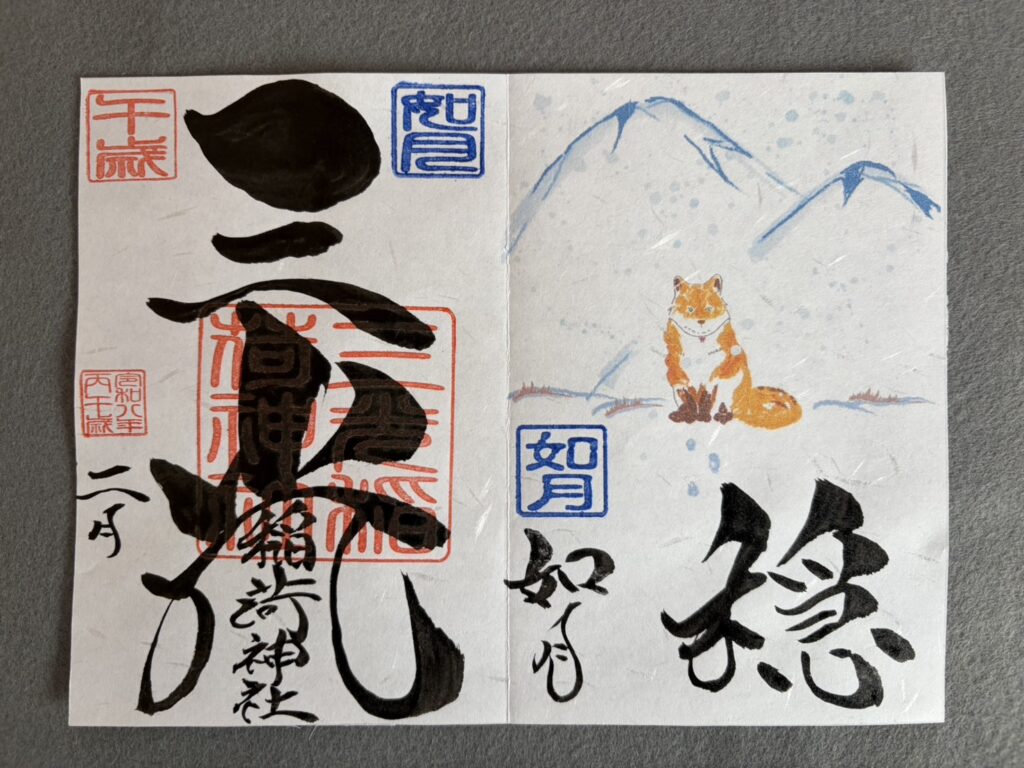 穏
如月
如月
如月
三光
稲荷神社
三光稲
荷神社
午歳
令和八年
丙午歳
二月